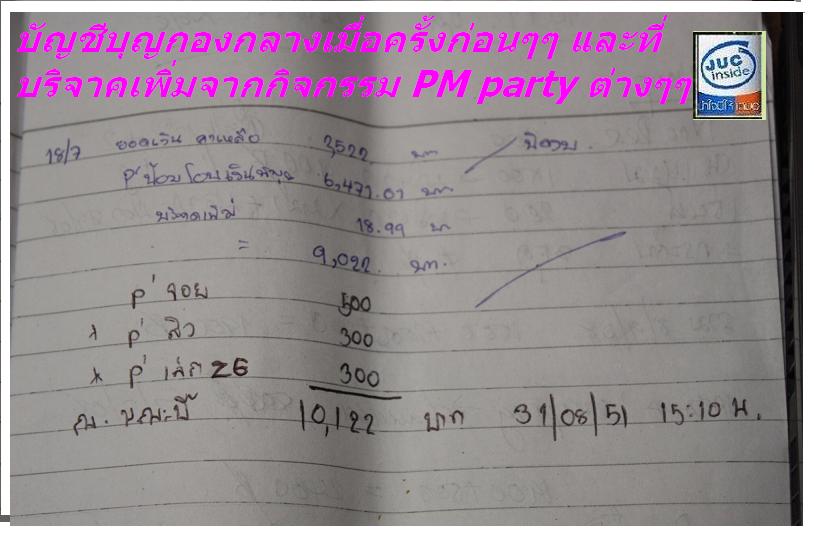 บัญชีบุญกองกลางเมื่อครั้งก่อนๆๆ และที่
บริจาคเพิ่มจากกิจกรรม PM party ต่างๆๆ
JUC
inside
18/7 ยอดเงิน คงเหลือ 2,522 บาท
P' ป้อม โอนเงิน 6,471.01 บาท
บริจาคเพิ่ม 18.99 บาท
= 9,022 บาท.
P' จอย 500
x P' สิว 300
x P' เล็ก Z6 300
ณ. ขณะนี้ 10,122 บาท 31/08/51 15:10 น.